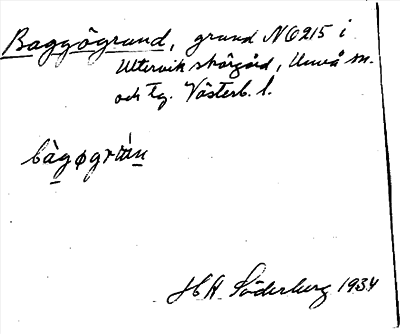 Baggögrund, grund N 6215 i
Yttervik skärgård, Umeå sn.
och tg. Västerb. l.
HA Söderberg 1934